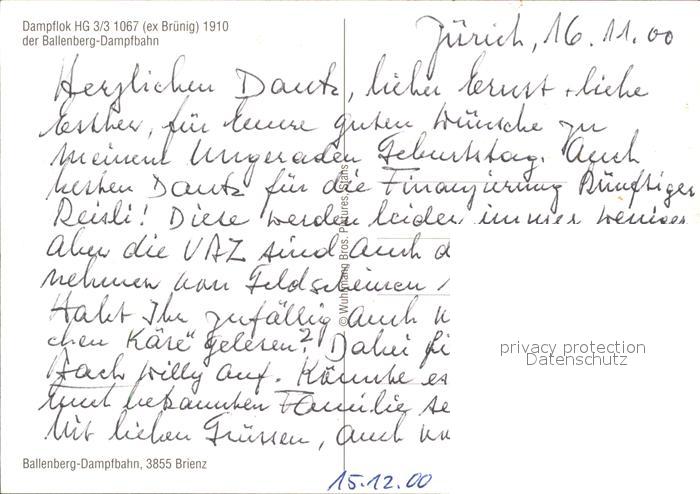 Dampflok HG 3/3 1067 (ex Brünig) 1910
der Ballenberg-Dampfbahn
Zürich, 16.11.00
Herzlichen Dank, lieber Ernst + liebe
Esther, für Eure guten Wünsche zu
meinem Ungeraden Geburtstag. Auch
besten Dank für die Finanzierung künftiger
Reisli! Diese werden leider immer weniger
aber die VAZ sind auch d
nehmen von Geldscheinen
Habt Ihr zufällig auch
chen Käse" gelesen? Dabei
Hach Willy auf. Könnte es
Euch bekannten Familie se
Mit lieben Grüssen, auch
© Wuhrmann Bros. Pictures, Stans
privacy protection
Datenschutz
Ballenberg-Dampfbahn, 3855 Brienz
15.12.00